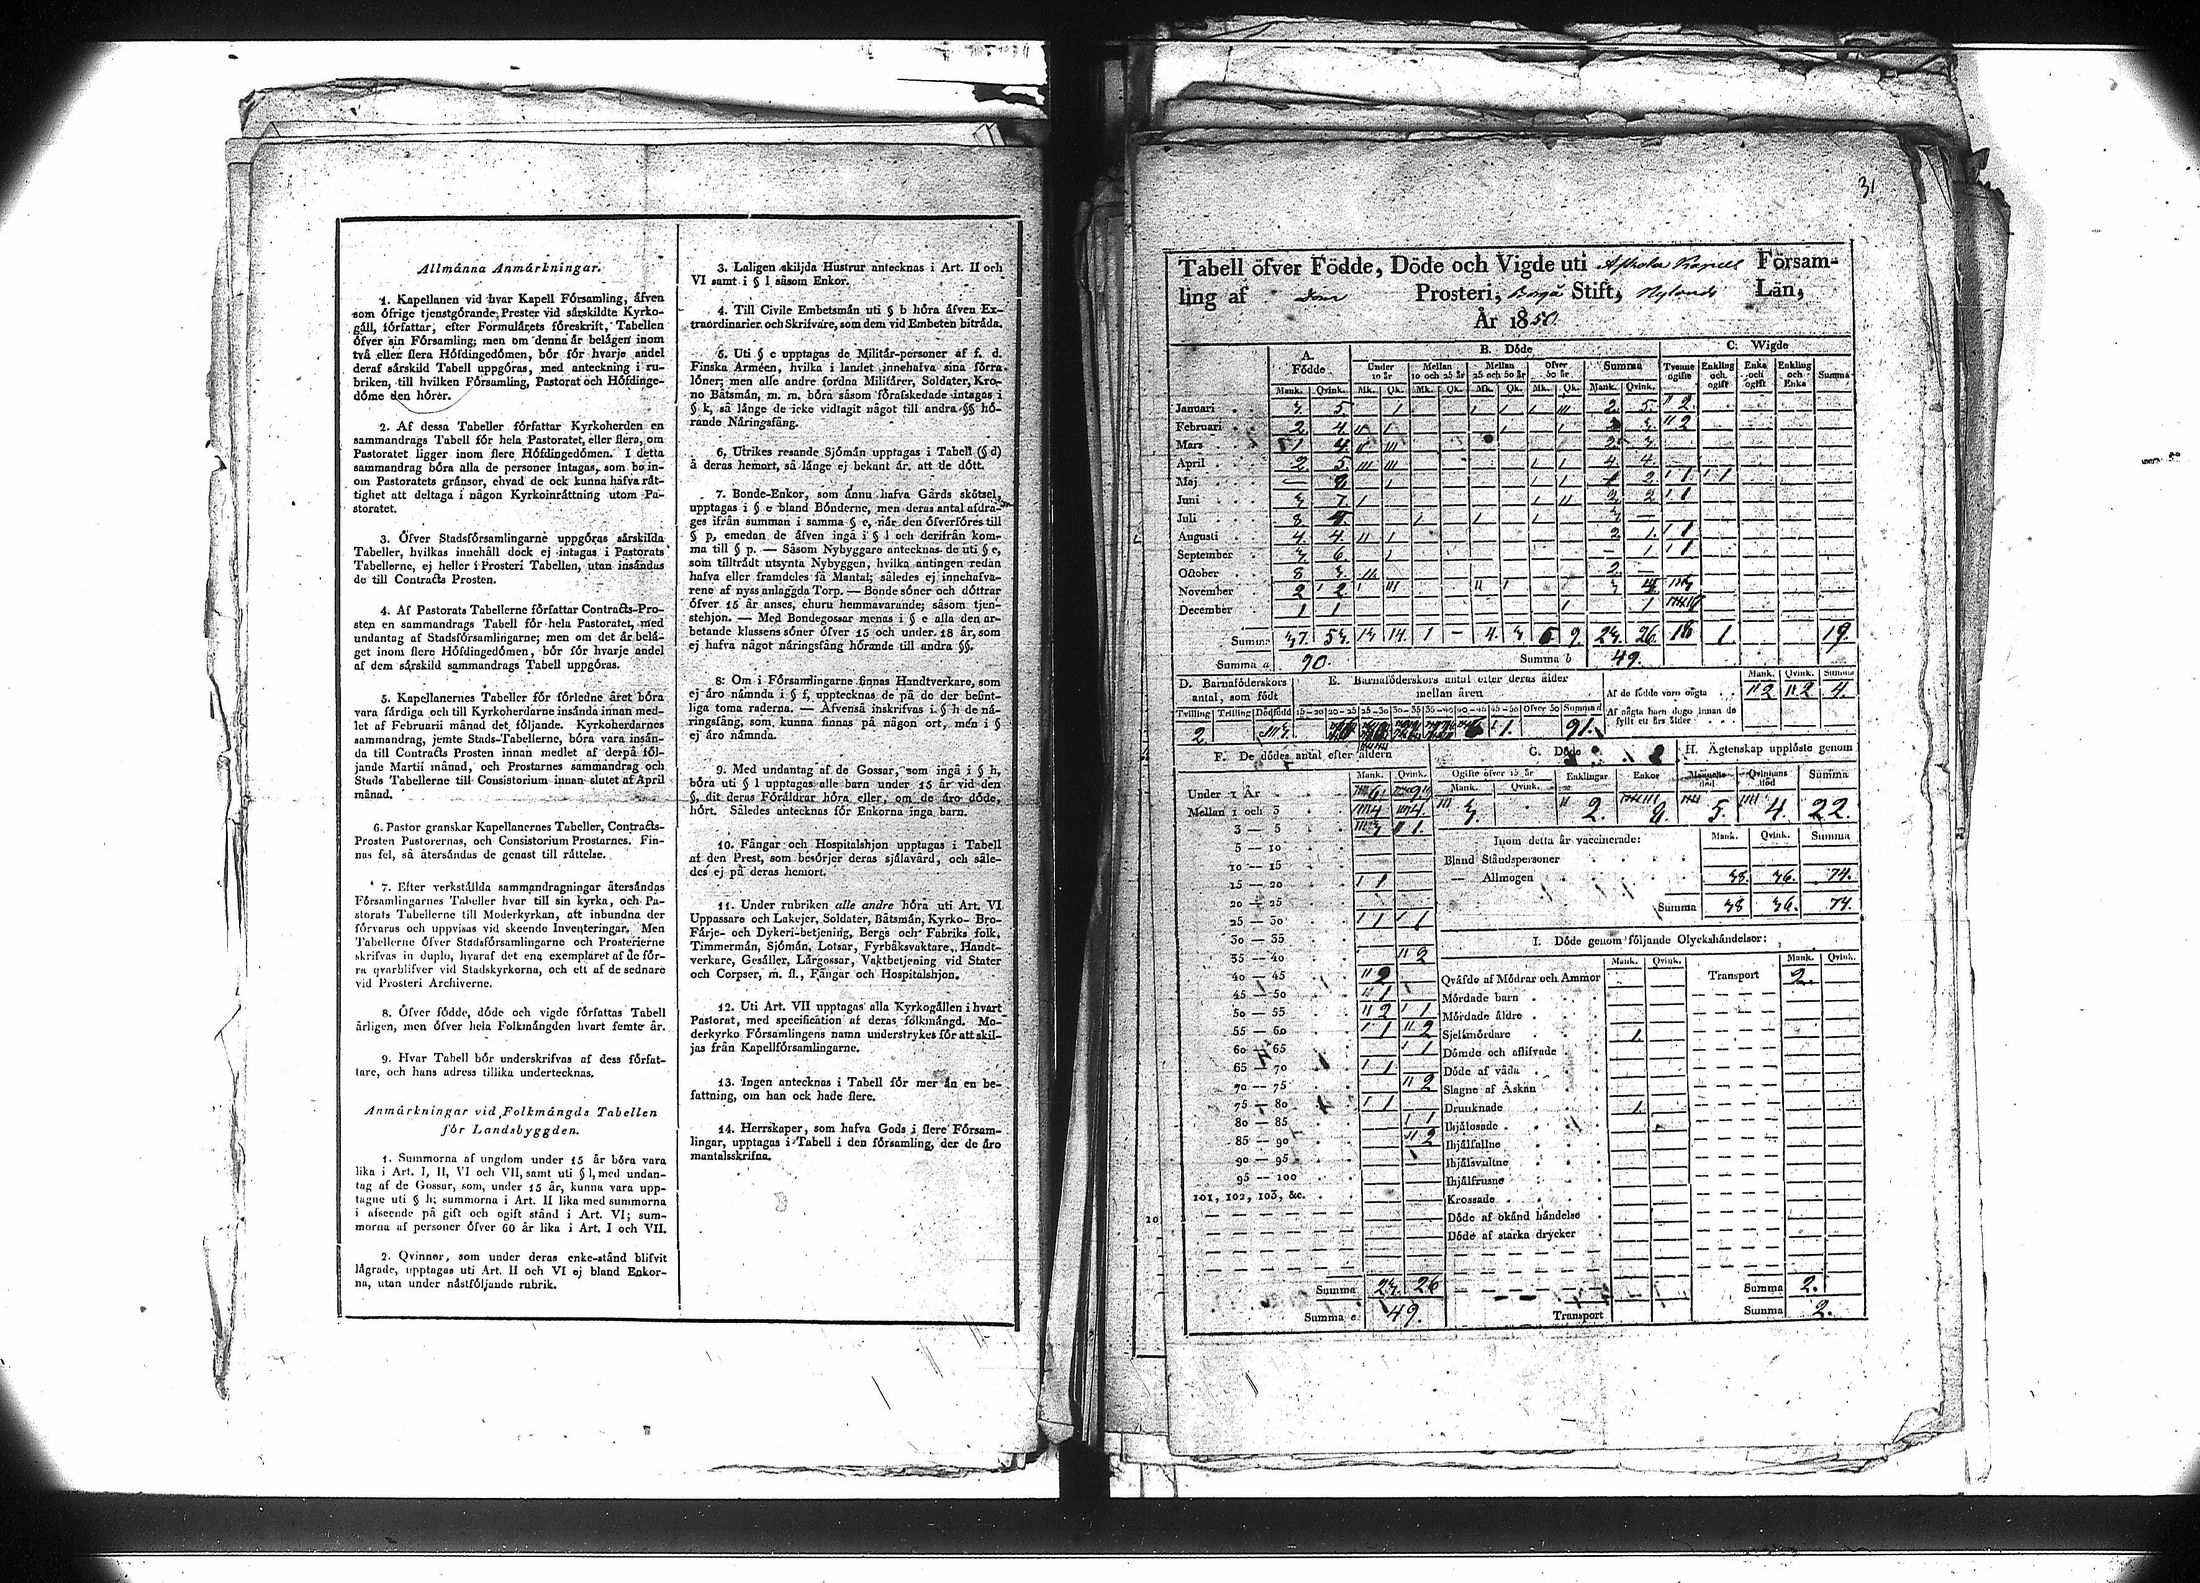 Allmänna Anmärkningar.
1. Kapellanen vid hvar Kapell Församling, äfven
som öfrige tjenstgörande Prester vid särskildte Kyrko-
gäll, författar, efter Formulärets föreskrift, Tabellen
öfver sin Församling; men om denna är belägen inom
två eller flera Höfdingedömen, bör för hvarje andel
deraf särskild Tabell uppgöras, med anteckning i ru-
briken, till hvilken Församling, Pastorat och Höfdinge-
döme den hörer.
2. Af dessa Tabeller författar Kyrkoherden en
sammandrags Tabell för hela Pastoratet, eller flera, om
Pastoratet ligger inom flere Höfdingedömen. I detta
sammandrag böra alla de personer intagas, som bo in-
om Pastoratets gränsor, ehvad de ock kunna hafva rät-
tighet att deltaga i någon Kyrkoinrättning utom Pa-
storatet.
3. Öfver Stadsförsamlingarne uppgöras särskilda
Tabeller, hvilkas innehåll dock ej intagas i Pastorats
Tabellerne, ej heller i Prosteri Tabellen, utan insändas
de till Contracts Prosten.
4. Af Pastorats Tabellerne författar Contracts-Pro-
sten en sammandrags Tabell för hela Pastoratet, med
undantag af Stadsförsamlingarne; men om det är belä-
get inom flere Höfdingedömen, bör för hvarje andel
af dem särskild sammandrags Tabell uppgöras.
5. Kapellanernes Tabeller för förledne året böra
vara färdiga och till Kyrkoherdarne insända innan med-
let af Februarii månad det följande. Kyrkoherdarnes
sammandrag, jemte Stads-Tabellerne, böra vara insän-
da till Contracts Prosten innan medlet af derpå föl-
jande Martii månad, och Prostarnes sammandrag och
Stads Tabellerne till Consistorium innan slutet af April
månad.
6. Pastor granskar Kapellanernes Tabeller, Contracts-
Prosten Pastorernas, och Consistorium Prostarnes. Fin-
nas fel, så återsändas de genast till rättelse.
7. Efter verkställda sammandragningar återsändas
Församlingarnes Tabeller hvar till sin kyrka, och Pa-
storats Tabellerne till Moderkyrkan, att inbundna der
förvaras och uppvisas vid skeende Inventeringar. Men
Tabellerne öfver Stadsförsamlingarne och Prosterierne
skrifvas in duplo, hvaraf det ena exemplaret af de för-
ra qvarblifver vid Stadskyrkorna, och ett af de sednare
vid Prosteri Archiverne.
8. Öfver födde, döde och vigde författas Tabell
årligen, men öfver hela Folkmängden hvart femte år.
9. Hvar Tabell bör underskrifvas af dess förfat-
tare, och hans adress tillika undertecknas.
Anmärkningar vid Folkmängds Tabellen
för Landsbyggden.
1. Summorna af ungdom under 15 år böra vara
lika i Art. I, II, VI och VII, samt uti § l, med undan-
tag af de Gossar, som, under 15 år, kunna vara upp-
tagne uti § h; summorna i Art. II lika med summorna
i afseende på gift och ogift stånd i Art. VI; sum-
morna af personer öfver 60 år lika i Art. I och VII.
2. Qvinnor, som under deras enke-stånd blifvit
lägrade, upptagas uti Art. II och VI ej bland Enkor-
na, utan under nästföljande rubrik.
3. Laligen skiljda Hustrur antecknas i Art. II och
VI samt i § l såsom Enkor.
4. Till Civile Embetsmän uti § b höra äfven Ex-
traordinarier och Skrifvare, som dem vid Embeten biträda.
5. Uti § c upptagas de Militär-personer af f. d.
Finska Arméen, hvilka i landet innehafva sina förra
löner; men alle andre fordna Militärer, Soldater, Kro-
no Båtsmän, m. m. böra såsom förafskedade intagas i
§ k, så länge de icke vidtagit något till andra §§ hö-
rande Näringsfång.
6. Utrikes resande Sjömän upptagas i Tabell (§ d)
å deras hemort, så länge ej bekant är, att de dött.
7. Bonde-Enkor, som ännu hafva Gårds skötsel,
upptagas i § e bland Bönderne, men deras antal afdra-
ges ifrån summan i samma § e, när den öfverföres till
§ p, emedan de äfven ingå i § l och derifrån kom-
ma till § p. — Såsom Nybyggare antecknas de uti § e,
som tillträdt utsynta Nybyggen, hvilka antingen redan
hafva eller framdeles få Mantal; således ej innehafva-
rene af nyss anlaggda Torp. — Bonde söner och döttrar
öfver 15 år anses, ehuru hemmavarande, såsom tjen-
stehjon. — Med Bondegossar menas i § e alla den ar-
betande klassens söner öfver 15 och under 18 år, som
ej hafva något näringsfång hörande till andra §§.
8. Om i Församlingarne finnas Handtverkare, som
ej äro nämnda i § f, upptecknas de på de der befint-
liga toma raderna. — Äfvenså inskrifvas i § h de nä-
ringsfång, som kunna finnas på någon ort, men i §
ej äro nämnda.
9. Med undantag af de Gossar, som ingå i § h,
böra uti § l upptagas alle barn under 15 år vid den
§, dit deras Föräldrar höra eller, om de äro döde,
hört. Således antecknas för Enkorna inga barn.
10. Fångar och Hospitalshjon upptagas i Tabell
af den Prest, som besörjer deras själavård, och såle-
des ej på deras hemort.
11. Under rubriken alle andre höra uti Art. VI
Uppassare och Lakejer, Soldater, Båtsmän, Kyrko- Bro-
Färje- och Dykeri-betjening, Bergs och Fabriks folk,
Timmermän, Sjömän, Lotsar, Fyrbåksvaktare, Handt-
verkare, Gesäller, Lärgossar, Vaktbetjening vid Stater
och Corpser, m. fl., Fångar och Hospitalshjon.
12. Uti Art. VII upptagas alla Kyrkogällen i hvart
Pastorat, med specification af deras folkmängd. Mo-
derkyrko Församlingens namn understrykes för att skil-
jas från Kapellförsamlingarne.
13. Ingen antecknas i Tabell för mer än en be-
fattning, om han ock hade flere.
14. Herrskaper, som hafva Gods i flere Försam-
lingar, upptagas i Tabell i den församling, der de äro
mantalsskrifna.
31
Tabell öfver Födde, Döde och Vigde uti Askola Kapell Försam-
ling af Dom Prosteri, Borgå Stift, Nylands Län,
År 1850.
A. Födde. B. Döde C. Wigde
Under 10 år Mellan 10 och 25 år Mellan 25 och 50 år Öfver 50 år Summa Tvenne ogifte Enkling och ogift Enka och ogift Enkling och Enka Summa
Mank. Qvink. Mk. Qk. Mk. Qk. Mk. Qk. Mk. Qk. Mank. Qvink.
Januari 3 5 2 5 2
Februari 2 4 2 3 2
Mars 1 4 2 3
April 2 5 4 4
Maj — 8 1 2 1 1
Juni 3 7 2 2 1
Juli 8 4 3 —
Augusti 4 4 2 1 1
September 3 6 — 1 1
October 8 3 2 —
November 2 2 3 4
December 1 1 1
Summa 37. 53. 13 14. 1 — 4. 3 5 9. 23. 26. 18 1 19.
Summa a 90. Summa b 49.
D. Barnaföderskors antal, som födt
E. Barnaföderskors antal efter deras ålder mellan åren
Af de födde voro oägta 2 2 4
Af oägta barn dogo innan de fyllt ett års ålder
Tvilling Trilling Dödfödd 15-20 20-25 25-30 30-35 35-40 40-45 45-50 Öfver 50 Summa d
2. 3. 6 1. 91.
F. De dödes antal efter åldern
Mank. Qvink.
Under 1 År 6 9
Mellan 1 och 3 4 4
3 — 5 3 1.
5 — 10
10 — 15
15 — 20 1
20 — 25
25 — 30 1 1
30 — 35
35 — 40 2
40 — 45 2
45 — 50 1
50 — 55 2 1
55 — 60 1 2
60 — 65 1
65 — 70 1
70 — 75 2
75 — 80 1
80 — 85 1
85 — 90 2
90 — 95
95 — 100
101, 102, 103, &c.
Summa 23. 26
Summa e 49.
G. Döde
Ogifte öfver 15 år Enklingar Enkor
Mank. Qvink.
3 2. 9
H. Ägtenskap upplöste genom
Mannens död Qvinnans död Summa
5. 4. 22.
Inom detta år vaccinerade: Mank. Qvink. Summa
Bland Ståndspersoner
— Allmogen 38 36. 74.
Summa 38 36. 74.
I. Döde genom följande Olyckshändelser:
Mank. Qvink. Mank. Qvink.
Qväfde af Mödrar och Ammor Transport 2.
Mördade barn
Mördade äldre
Sjelfmördare 1.
Dömde och aflifvade
Döde af våda
Slagne af Åskan
Drunknade 1.
Ihjälosade
Ihjälfallne
Ihjälsvultne
Ihjälfrusne
Krossade
Döde af okänd händelse
Döde af starka drycker
Summa 2.
Transport Summa 2.